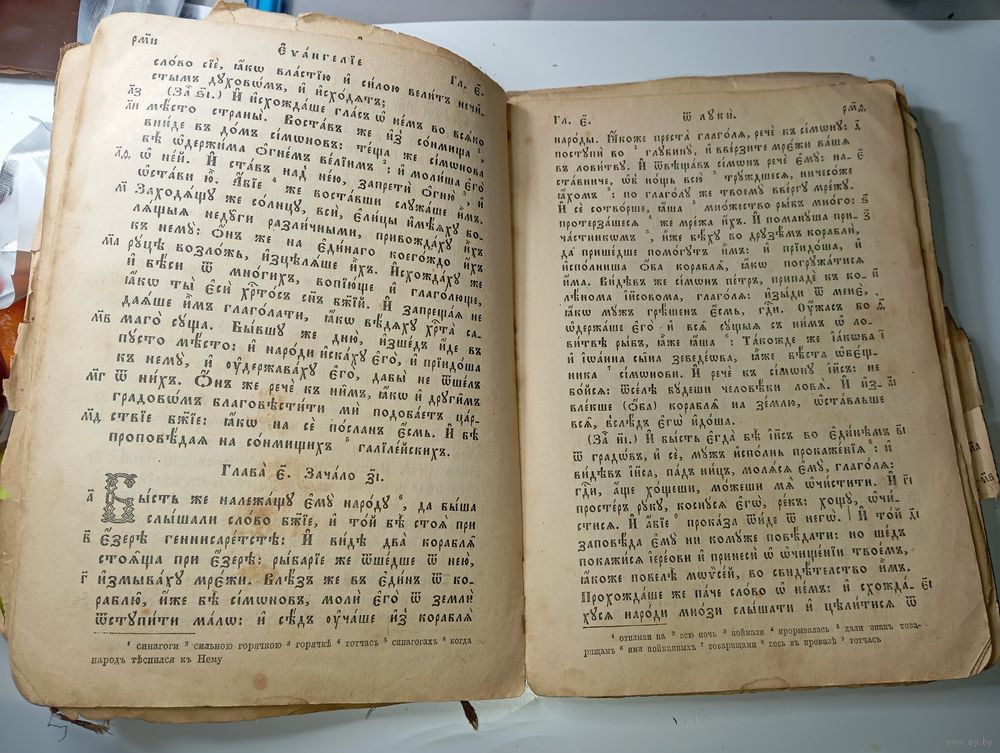 рм҃и Є҆ѵа́нгелїе Гл. є҃.
сло́во сїѐ, ꙗ҆́кѡ вла́стїю и҆ си́лою вели́тъ нечи-
стымъ дꙋховѡ́мъ, и҆ и҆схо́дѧтъ;
л҃з (За҄ ѕ҃і.) И҆ и҆схожда́ше гла́съ ѡ҆ не́мъ во всѧ́ко
л҃и мѣ́сто страны̀. Воста́въ же и҆з̾ со́нмища ¹,
вни́де въ до́мъ сі́мѡновъ: те́ща же сі́мѡнова
бѣ̀ ѡ҆держи́ма ѻ҆гне́мъ вели́їимъ ²: и҆ моли́ша є҆го̀
л҃ѳ ѡ҆ не́й. И҆ ста́въ над̾ не́ю, запретѝ ѻ҆гню̀ ³, и҆
ѡ҆ста́ви ю҆̀. А҆́бїе ⁴ же воста́вши слꙋжа́ше и҆̀мъ.
м҃ Заходѧ́щꙋ же со́лнцꙋ, всѝ, є҆ли́цы и҆мѣ́ѧхꙋ бо-
лѧ́щыѧ недꙋ́ги разли́чными, привожда́хꙋ и҆̀хъ
къ немꙋ̀: Ѻ҆́нъ же на є҆ди́наго коего́ждо и҆́хъ
рꙋ́цѣ возло́жь, и҆зцѣлѧ́ше и҆̀хъ.
м҃а И҆схожда́хꙋ же
и҆ бѣ́си ѿ мно́гихъ, вопїю́ще и҆ глаго́люще,
ꙗ҆́кѡ ты̀ є҆сѝ хрⷭ҇то́съ сн҃ъ бж҃їй. И҆ запреща́ѧ не
даѧ́ше и҆̀мъ глаго́лати, ꙗ҆́кѡ вѣ́дѧхꙋ хрⷭ҇та̀ са-
м҃в маго̀ сꙋ́ща. Бы́вшꙋ же дню̀, и҆зше́дъ и҆́де въ
пꙋ́сто мѣ́сто: и҆ наро́ди и҆ска́хꙋ є҆го̀, и҆ прїидо́ша
къ немꙋ̀, и҆ ᲂу҆держава́хꙋ є҆го̀, да́бы не ѿше́лъ
м҃г ѿ ни́хъ. Ѻ҆́нъ же речѐ къ ни̑мъ, ꙗ҆́кѡ и҆ други̑мъ
градовѡ́мъ благовѣсти́ти мѝ подоба́етъ ца́р-
м҃д ствїе бж҃їе: ꙗ҆́кѡ на сѐ по́сланъ є҆́смь. И҆ бѣ̀
проповѣ́даѧ на со́нмищихъ ⁵ галїле́йскихъ.
Глава̀ є҃. Зача́ло з҃і.
а҃ Бы́сть же належа́щꙋ є҆мꙋ̀ наро́дꙋ ⁶, да бы́ша
слы́шали сло́во бж҃їе, и҆ то́й бѣ̀ стоѧ̀ при
в҃ є҆́зерѣ геннисаре́тстѣ: И҆ ви́дѣ два̀ кораблѧ̑
стоѧ̑ща при є҆́зерѣ: ры́барїе же ѿше́дше ѿ не́ю,
г҃ и҆змыва́хꙋ мре́жи. Влѣ́зъ же въ є҆ди́нъ ѿ ко-
раблю̑, и҆́же бѣ̀ сі́мѡновъ, молѝ є҆го̀ ѿ землѝ
ѿстꙋпи́ти ма́лѡ: и҆ сѣ́дъ ᲂу҆ча́ше и҆з̾ кораблѧ̀
¹ синагоги ² сильною горячкою ³ горячкѣ ⁴ тотчасъ ⁵ синагогахъ ⁶ когда
народъ тѣснился къ Нему
Гл. є҃. Ѿ лꙋкѝ. рм҃ѳ
наро́ды. Ꙗ҆́коже преста̀ глаго́лѧ, речѐ къ сі́мѡнꙋ: д҃
постꙋпѝ во ¹ глꙋбинꙋ̀, и҆ вве́рзите мре́жи ва́шѧ
въ лови́твꙋ. И҆ ѿвѣща́въ сі́мѡнъ речѐ є҆мꙋ̀: на- є҃
ста́вниче, ѡ҆б̾ но́щь всю̀ ² трꙋ́ждшесѧ, ничесо́же
ꙗ҆́хомъ ³: по глаго́лꙋ же твоемꙋ̀ вве́ргꙋ мре́жꙋ.
И҆ сѐ сотво́рше, ꙗ҆́ша ³ мно́жество ры́бъ мно́го: ѕ҃
протерза́шесѧ ⁴ же мре́жа и҆́хъ. И҆ помаанꙋ́ша при- з҃
ча́стникѡмъ ⁵, и҆̀же бѣ́хꙋ во дрꙋзѣ́мъ кораблѝ,
да прише́дше помо́гꙋтъ и҆̀мъ: и҆ прїидо́ша, и҆
и҆спо́лниша ѻ҆́ба кораблѧ̑, ꙗ҆́кѡ погрꙋжа́тисѧ
и҆́ма. Ви́дѣвъ же сі́мѡнъ пе́тръ, припадѐ къ ко- и҃
лѣ́нома і҆и҃совома, глаго́лѧ: и҆зы́ди ѿ менє̀,
ꙗ҆́кѡ мꙋ́жъ грѣ́шенъ є҆́смь, гдⷭ҇и. Оу҆́жасъ бо ѳ҃
ѡ҆держа́ше є҆го̀ и҆ всѧ̑ сꙋ́щыѧ съ ни́мъ ѡ҆ ло-
ви́твѣ ры́бъ, ꙗ҆̀же ꙗ҆́ша ⁶: Та́кожде же і҆а́кѡва і҃
и҆ і҆ѡа́нна сы̑на зеведє́ѡва, ꙗ҆̀же бѣ́ста ѡ҆бє́щ-
ника ⁷ сі́мѡнови. И҆ речѐ къ сі́мѡнꙋ і҆и҃съ: не
бо́йсѧ: ѿсе́лѣ бꙋ́деши человѣ́ки ловѧ̀. И҆ и҆з- а҃і
вле́кше (ѻ҆́ба) кораблѧ̑ на зе́млю, ѡ҆ста́вльше
всѧ̑, в̾слѣ́дъ є҆гѡ̀ и҆до́ша.
(За҄ и҃і.) И҆ бы́сть є҆гда̀ бѣ̀ і҆и҃съ во є҆ди́нѣмъ в҃і
ѿ градѡ́въ, и҆ сѐ, мꙋ́жъ и҆спо́лнь прокаже́нїѧ ⁸: и҆
ви́дѣвъ і҆и҃са, па́дъ ни́цъ, молѧ́сѧ є҆мꙋ̀, глаго́лѧ:
гдⷭ҇и, а҆́ще хо́щеши, мо́жеши мѧ̀ ѡ҆чи́стити. И҆ г҃і
просте́ръ рꙋ́кꙋ, коснꙋ́сѧ є҆гѡ̀, ре́къ: хощꙋ̀, ѡ҆чи́-
стисѧ. И҆ а҆́бїе ⁹ прока́за ѿи́де ѿ негѡ̀. И҆ то́й д҃і
заповѣ́да є҆мꙋ̀ ни комꙋ́же повѣ́дати: но ше́дъ
покажи́сѧ і҆ере́ови и҆ принесѝ ѡ҆ ѡ҆чище́нїи твое́мъ,
ꙗ҆́коже повелѣ̀ мѡѷсе́й, во свидѣ́тельство и҆̀мъ.
Прохожда́ше же па́че сло́во ѡ҆ не́мъ: и҆ схожда́- є҃і
хꙋсѧ наро́ди мно́зи слы́шати и҆ цѣли́тисѧ ѿ
¹ отплыви на ² всю ночь ³ поймали ⁴ прорывалась ⁵ дали знакъ това-
рищамъ ⁶ ими пойманныхъ ⁷ товарищами ⁸ весь въ проказѣ ⁹ тотчасъ
www.ay.by